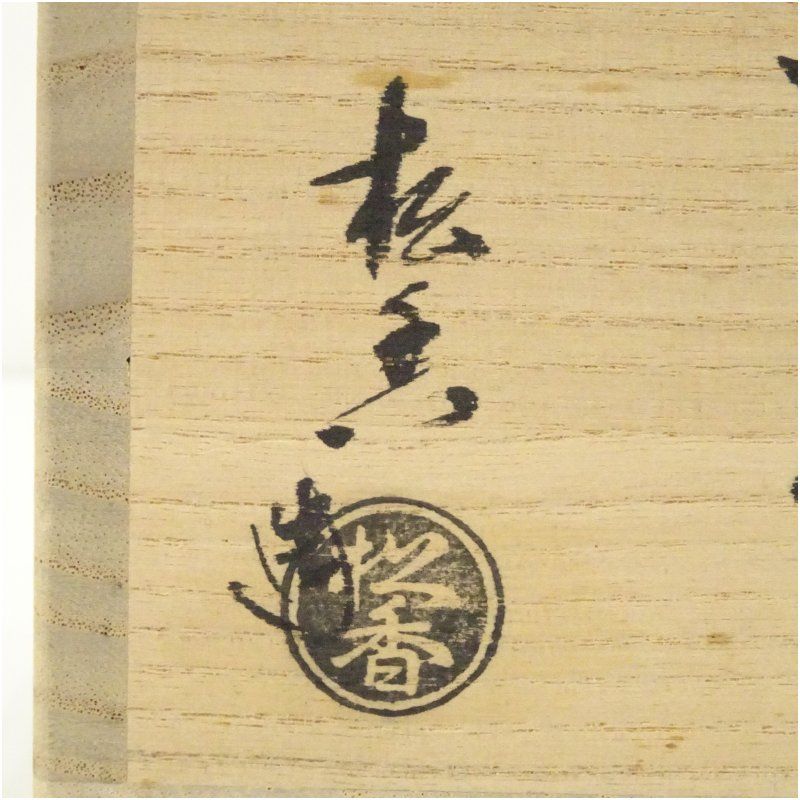 松香造
松香